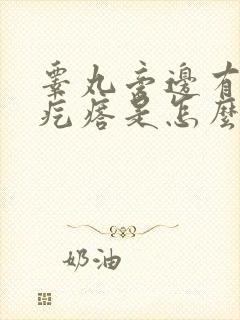 睾丸旁邊有
疙瘩是怎麼
奶油